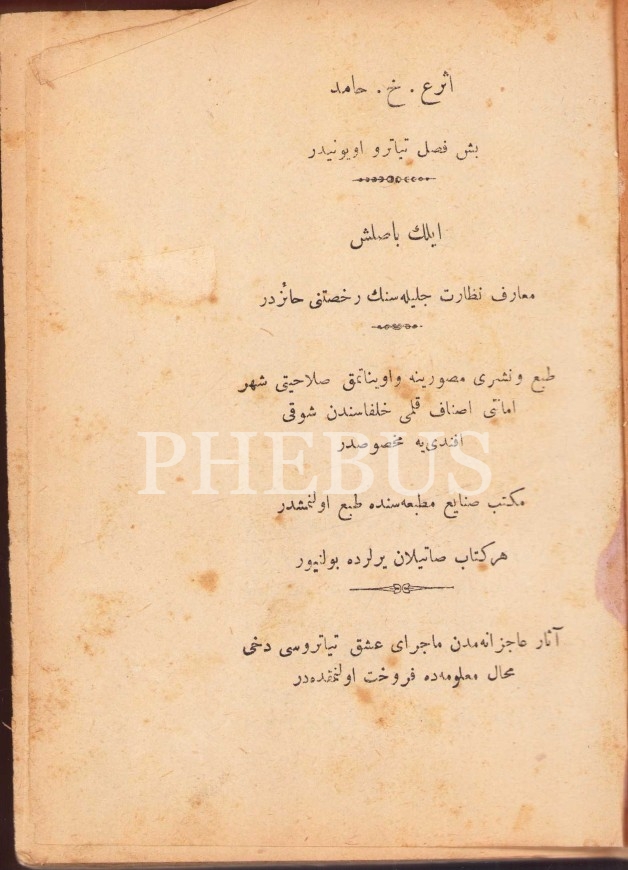 اثر ع . خ . حامد
بش فصل تیاترو اویونیدر
ایلك باصلش
معارف نظارت جلیله‌سنك رخصتنی حائزدر
طبع و نشری مصورینه و اویناتمق صلاحیتی شهر
امانتی اصناف قلمی خلفاسندن شوقی
افندی‌یه مخصوصدر
PHEBUS
مكتب صنایع مطبعه‌سنده طبع اولنمشدر
هر كتاب صاتیلان یرلرده بولنیور
آثار عاجزانه‌مدن ماجرای عشق تیاتروسی دخی
محال معلومه‌ده فروخت اولنمقده‌در